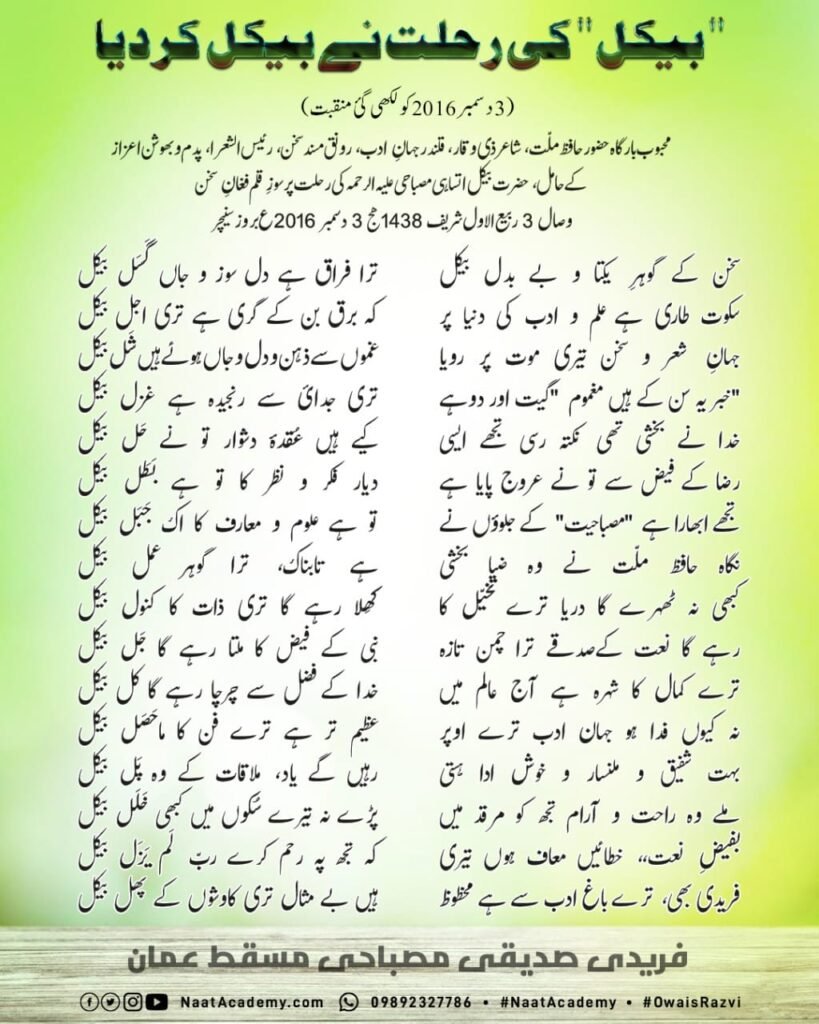 "بیکل" کی رحلت نے بیکل کر دیا
(3 دسمبر 2016 کو لکھی گئی منقبت)
محبوب بارگاہ حضور حافظ ملّت، شاعر ذِی وقار، قلندر جہانِ ادب، رونق مسند سخن، رئیس الشعرا، پدم و بھوشن اعزاز
کے حامل، حضرت بیکل اتساہی مصباحی علیہ الرحمہ کی رحلت پر سوزِ قلم فغانِ سخن
وصال 3 ربیع الاول شریف 1438ھج 3 دسمبر 2016ع بروز سنیچر
سخن کے گوہرِ یکتا و بے بدل بیکل ترا فراق ہے دل سوز و جاں گَسَل بیکل
سکوت طاری ہے علم و ادب کی دنیا پر کہ برق بن کے گری ہے تری اجل بیکل
جہانِ شعر و سخن تیری موت پر رویا غموں سے ذہن و دل و جاں ہوئے ہیں شَل بیکل
"خبر یہ سن کے ہیں مغموم "گیت اور دوہے تری جدائی سے رنجیدہ ہے غزل بیکل
خدا نے بخشی تھی نکتہ رسی تجھے ایسی کیے ہیں عُقدۂ دشوار تو نے حَل بیکل
رضا کے فیض سے تو نے عروج پایا ہے دیار فکر و نظر کا تو ہے بَطَل بیکل
تجھے ابھارا ہے "مصباحیت" کے جلوؤں نے تو ہے علوم و معارف کا اک جَبَل بیکل
نگاہ حافظ ملّت نے وہ ضیا بخشی ہے تابناک، ترا گوہر عمل بیکل
کبھی نہ ٹھہرے گا دریا ترے تخیّل کا کھِلا رہے گا تری ذات کا کنول بیکل
رہے گا نعت کے صدقے ترا چمن تازہ نبی کے فیض کا ملتا رہے گا جَل بیکل
ترے کمال کا شہرہ ہے آج عالم میں خدا کے فضل سے چرچا رہے گا کل بیکل
نہ کیوں فدا ہو جہان ادب ترے اوپر عظیم تر ہے ترے فن کا ماحَصَل بیکل
بہت شفیق و ملنسار و خوش ادا ہستی رہیں گے یاد، ملاقات کے وہ پَل بیکل
ملے وہ راحت و آرام تجھ کو مرقد میں پڑے نہ تیرے سُکوں میں کبھی خَلَل بیکل
بفیضِ نعت،، خطائیں معاف ہوں تیری کہ تجھ پہ رحم کرے ربّ لَم یَزَل بیکل
فریدی بھی، ترے باغ ادب سے ہے محظوظ ہیں بے مثال تری کاوشوں کے پھل بیکل
فریدی صدیقی مصباحی مسقط عمان
NaatAcademy.com 09892327786 • #NaatAcademy • #OwaisRazvi